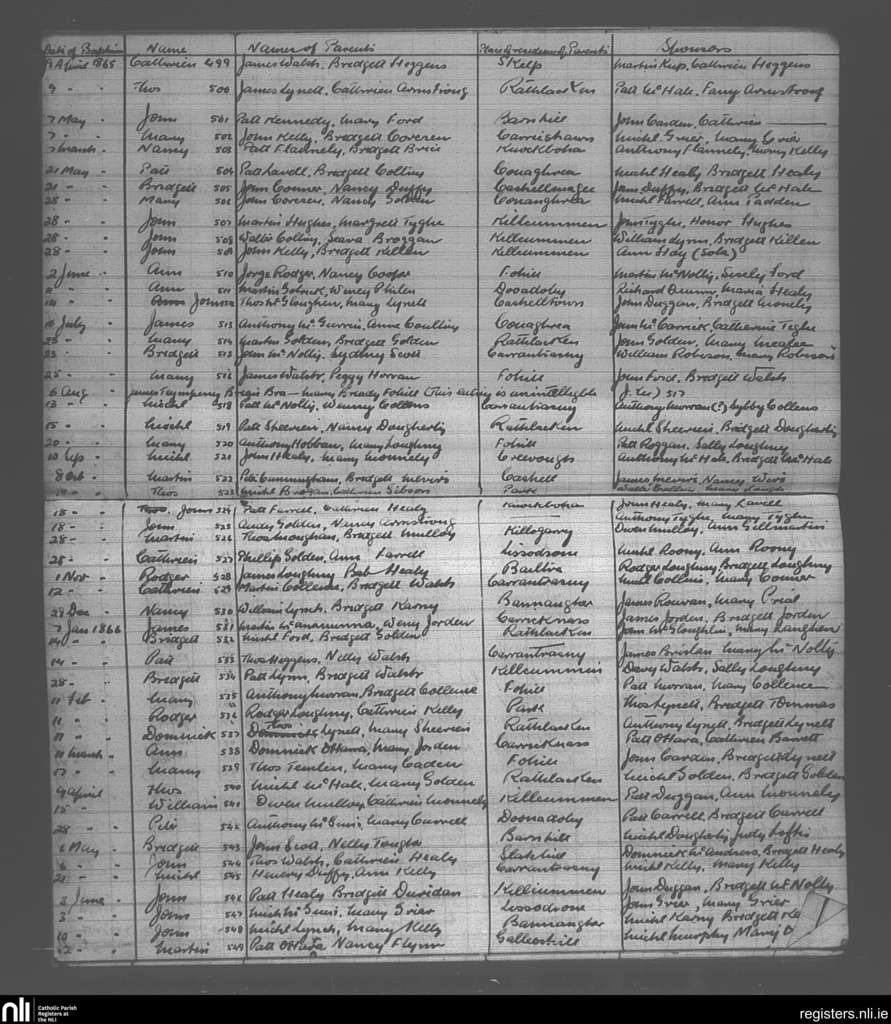 Date of Baptism Name Names of Parents Place & residence of Parents Sponsors
9 April 1865 Cathrien 499 James Walsh, Bridgett Heggens Skelp Martin Kup, Cathrien Heggens
9 " Thos 500 James Lynett, Cathrien Armstrong Rathlacken Patt McHale, Fanny Armstrong
7 May John 501 Patt Kennedy, Mary Ford Barnhill John Carden, Cathrien
7 " Many 502 John Kelly, Bridgett Coveren Carrickhawn Michl Grier, Many Grier
7 March " Nancy 503 Patt Flannely, Bridgett Brice Knockboha Anthony Flannely, Mary Kelly
21 May " Patt 504 Patt Lavell, Bridgett Collins Conaghrea Michl Healy Bridgett Healy
21 " Bridgett 505 John Conner, Nancy Duffy Cashellmagee James Duffy, Bridgett McHale
28 " Mary 506 John Coveren, Nancy Golden Conanghrea Michl Farrell, Ann Padden
28 " John 507 Martin Hughes, Margrett Tyghe Killcummen John Tyghe, Honor Hughes
28 " John 508 Walter Collins, Seava Broggan Killcummen William Lynn, Bridgett Killen
28 " John 509 John Kelly, Bridgett Killen Killcummen Ann Hoy (Sola)
2 June " Ann 510 Jorge Rodger, Nancy Cooper Fohill Martin McNolly, Sisely Ford
" Ann 511 Martin Wency Phelen Dooadoby Richard Dunn, Maria Healy
14 " Johnson Thos McGloughen, Many Lynett Cashelltown John Duggan, Bridgett Monely
10 July James 513 Anthony McGurrin, Anne Coulling Conaghrea John McCarrick, Catherine Tighe
23 " Many 514 Martin Golden, Bridgett Golden Rathlacken John Golden, Many
23 " Bridgett 515 John McNolly, Sydney Scott Carrantrasny William Robison, Mary Robinson
25 " Many 516 James Walsh, Peggy Horran Fohill John Ford, Bridgett Walsh
6 Aug James Bregis Bra — Mary Brady Fohill (This entry is unintelligible J. Lu) 517
13 " Michl 518 Patt McNolly, Wenny Collens Carrantrasny Anthony Morran (?) Sybby Collens
15 " Michl 519 Patt Sheeren, Nancy Dougherty Rathlacken Michl Sheeren, Bridgett Dougherty
20 " Many 520 Anthony Hobban, Many Loughney Fohill Patt Roggan, Sally Loughney
10 Sep Michl 521 John Healy, Many Monnely Creevough Anthony McHale, Bridgett McHale
8 Oct " Martin 522 Patt Cunningham, Bridgett Nevers Cashell James Nevers, Nancy Weir
" Thos 523 Michl Brogan, Cathrien Gibson Park
18 " Thos. John 524 Patt Farrel, Cathrien Healy Knockboha John Healy, Mary Lavell
18 " John 525 Andy Golden, Nancy Armstrong Anthony Tyghe, Mary Tyghe
28 " Martin 526 Thos Moughan, Bridgett Mulloy Killogarry Owen Mulloy, Ann Gillmartin
28 " Cathrien 527 Phillip Golden, Ann Farrell Lissodrone Michl Roony, Ann Roony
1 Nov " Rodger 528 James Loughney Bab Healy Bailtra Rodger Loughney, Bridgett Loughney
12 " Cathrien 529 Martin Collense, Bridgett Walsh Carrantrasny Michl Collins, Mary Conner
29 Dec " Nancy 530 William Lynch, Bridgett Karny Bannanghar James Rouvan, Mary Preal
7 Jan 1866 James 531 Martin McManamunna, Weny Jorden Carricknass James Jorden, Bridgett Jorden
14 " Bridgett 532 Michl Ford, Bridgett Golden Rathlacken John McGloughlin, Mary Langhen
14 " Patt 533 Thos Heggens, Nelly Walsh Carrantrasny James Brislan Many McNolly
28 " Bridgett 534 Patt Lynn, Bridgett Walsh Killcummin Davy Walsh, Sally Loughney
11 Feb " Many 535 Anthony Morran, Bridgett Collense Fohill Patt Morran, Mary Collence
11 " Rodger 536 Rodger Loughney, Cathrien Kelly Park Thos Lynett, Bridgett
11 " Dominick 537 Thos Lynett, Many Sheeren Rathlacken Anthony Lynett, Bridgett Lynett
11 March " Ann 538 Dominick O'Hara, Many Jorden Carricknass Patt O'Hara, Cathrien Barrett
17 " Many 539 Thos Temlen, Many Caden Fohill John Carden, Bridgett Lynett
9 April " Thos 540 Michl McHale, Many Golden Rathlacken Michl Golden, Bridgett Golden
15 " William 541 Owen Mulloy, Cathrien Monnely Killcummen Patt Duggan, Ann Monnely
28 " Peter 542 Anthony McGuire, Many Currell Doonadoby Patt Carrell, Bridgett Carrell
6 May " Bridgett 543 John Scott, Nelly Tougher Barnhill Michl Dougherty Judy Loftis
6 " John 544 Thos Walsh, Cathrien Healy Slatehill Dominick McAndrew, Bridgett Healy
21 " Michl 545 Henry Duffy, Ann Kelly Carrantrasny Michl Kelly, Mary Kelly
3 June " John 546 Patt Healy Bridgett Davidan Killcummen John Duggan, Bridgett McNolly
3 " John 547 Michl McGuire, Mary Grier Lissodrone John Grier, Mary Grier
10 " John 548 Michl Lynch, Many Kelly Bannanghar Michl Karny Bridgett Ka
12 " Martin 549 Patt O'Hara Nancy Flynn Gallershill Michl Murphy Mary
nli Catholic Parish Registers at the NLI registers.nli.ie